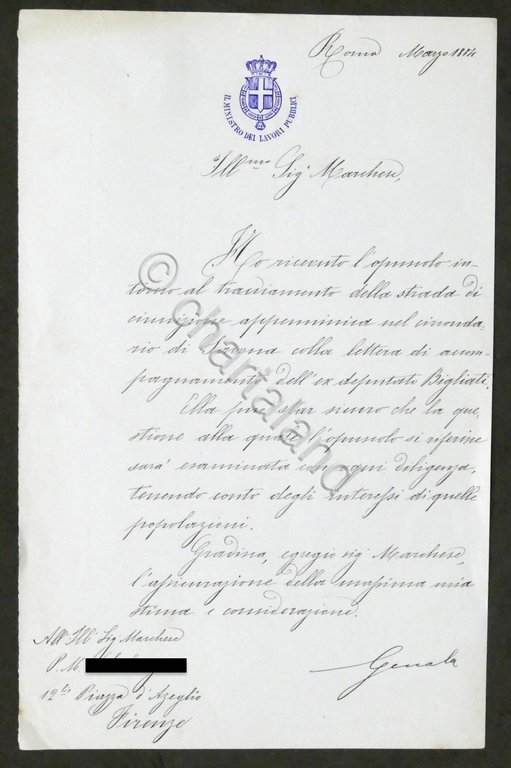 Roma Marzo 1884
IL MINISTRO DEI LAVORI PUBBLICI
Ill.mo Sig.r Marchese,
Ho ricevuto l'opuscolo in-
torno al tracciamento della strada di
cinzione appenninica nel circonda
rio di colla lettera di accom-
pagnamento dell'ex deputato Bigliati.
Ella può star sicuro che la que-
stione alla quale l'opuscolo si riferisce
sarà esaminata con ogni diligenza,
tenendo conto degli interessi di quelle
popolazioni.
Gradisca, egregio sig. Marchese,
l'assicurazione della massima mia
stima e considerazione.
Genala
All' Ill. Sig. Marchese
P. M.
12 bis Piazza d'Azeglio
Firenze
© chartaland